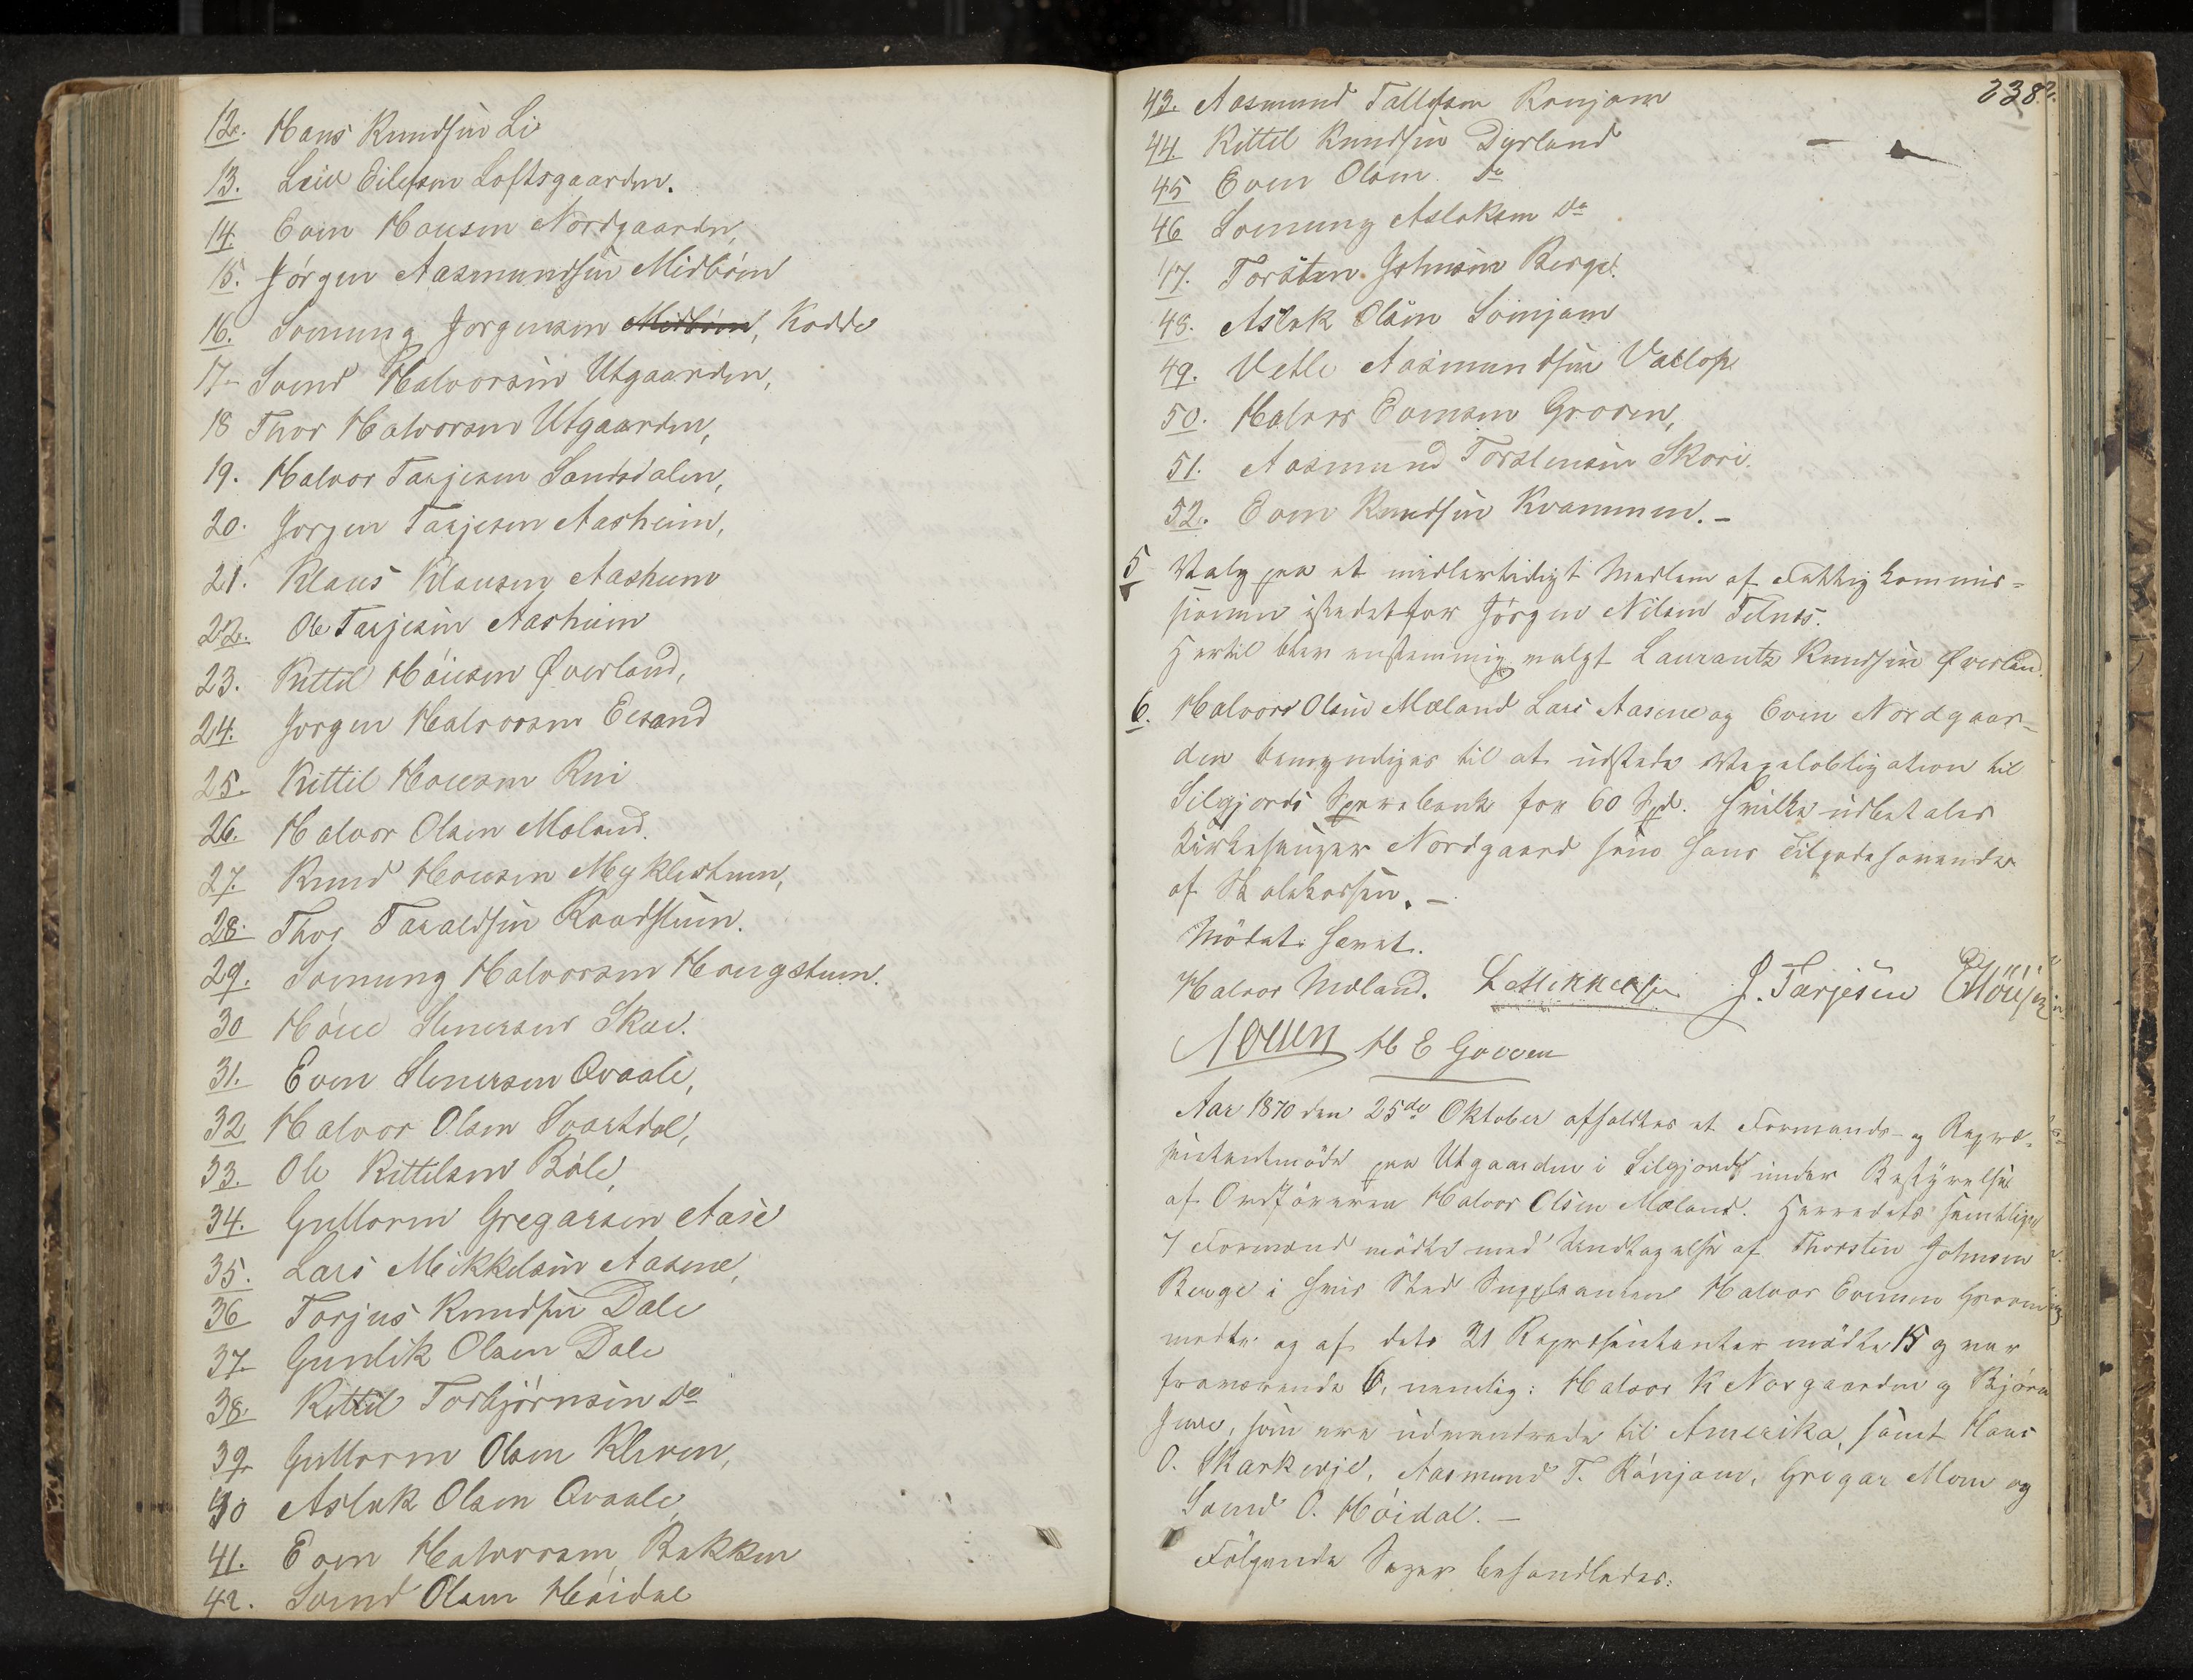 12. Hans Knudsen Li
13. Leiv Eilefsen Loftsgaarden.
14. Even Housen Nordgaarden,
15. Jörgen Aasmundsen Midböen
16. Svenung Jorgensen Midböen, Kodde
17- Svend Halvorsen Utgaarden,
18 Thor Halvorsen Utgaarden,
19. Halvor Tarjesen Sandsdalen,
20. Jorgen Tarjesen Aasheim,
21. Klaus Klausen Aasheim
22. Ole Tarjesen Aasheim
23. Kittil Höiesen Øverland,
24. Jorgen Halvorsen
25. Kittil Housen Rui
26. Halvor Olsen Moland.
27. Knud Housen Myklestuen,
28. Thor Taraldsen Raadstuen.
29. Svenung Halvorsen Haugstuen.
30 Höie Stenersen Skee.
31. Even Stenersen Qvaale,
32 Halvor Olsen Svartdal,
33. Ole Kittilsen Böle,
34. Guttorm Gregarsen Aase
35. Lars Mikkelsen Aasene,
36 Torjus Knudsen Dale
37. Gunlik Olsen Dale
38. Kittil Torbjörnsen do
39. Guttorm Olsen Kleven,
40 Aslak Olsen Qvaale,
41. Even Halvorsen Bakken
42. Svend Olsen Höidal
238.
43. Aasmund Tallefsen Ronjom
44. Kittil Knudsen Dyrland
45 Even Olsen do
46 Svenung Asloksen do
47. Torsten Johnsen Berge.
48. Aslak Olsen Sönjom
49. Vetle Aasmundsen
50. Halvor Evensen Groven,
51. Aasmund Torstensen Skori.
52. Even Knudsen Kvammen. -
5 Valg paa et midlertidigt Medlem af Fattigkommis=
sionen istedetfor Jörgen Nilsen Telnes.
Hertil blev enstemmig valgt Laurantz Knudsen Øverland.
6. Halvor Olsen Mæland Lars Aasene og Even Nordgaar=
den bemyndiges til at udstede Vexelobligation til
Silgjords Sparebank for 60 Spd. hvilke udbetales
Kirkesanger Nordgaard som hans Tilgodehavende
af Skolekassen. -
Mödet hævet.
Halvor Mæland. L Mikkelsen J. Tarjesen E Höusen
H E Groven
Aar 1870 den 25de Oktober afholdtes et Formands- og Repræ=
sentantmöde paa Utgaarden i Silgjord under Bestyrelse
af Ordföreren Halvor Olsen Mæland. Herredets samtlige
7 Formænd mödte med Undtagelse af Thorsten Johnsen
Berge i hvis Sted Suppleanten Halvor Evensen Groven
mödte og af dets 21 Repræsentanter mödte 15 og var
fraværende 6, nemlig: Halvor K Norgaarden og Björn
Juve, som ere udvandrede til Amerika, samt Hans
O. Skarkerje, Aasmund T. Rönjom, Gregar Moen og
Svend O. Höidal. -
Fölgende Sager behandledes: